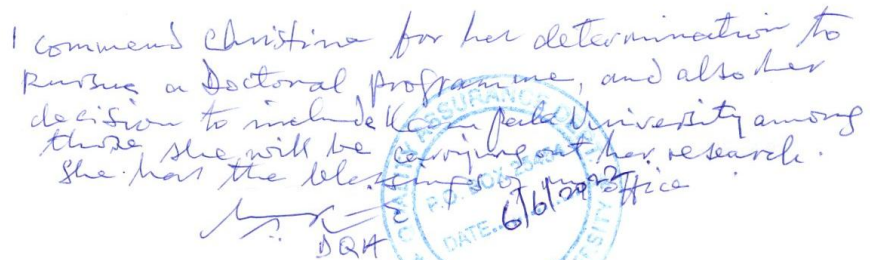 I commend Christine for her determination to
Pursue a Doctoral programme, and also her
decision to include Kampala University among
those she will be carrying out her research.
She has the blessings of my office.
DQA
QUALITY ASSURANCE
P.O. BOX
DATE 6/6/2022